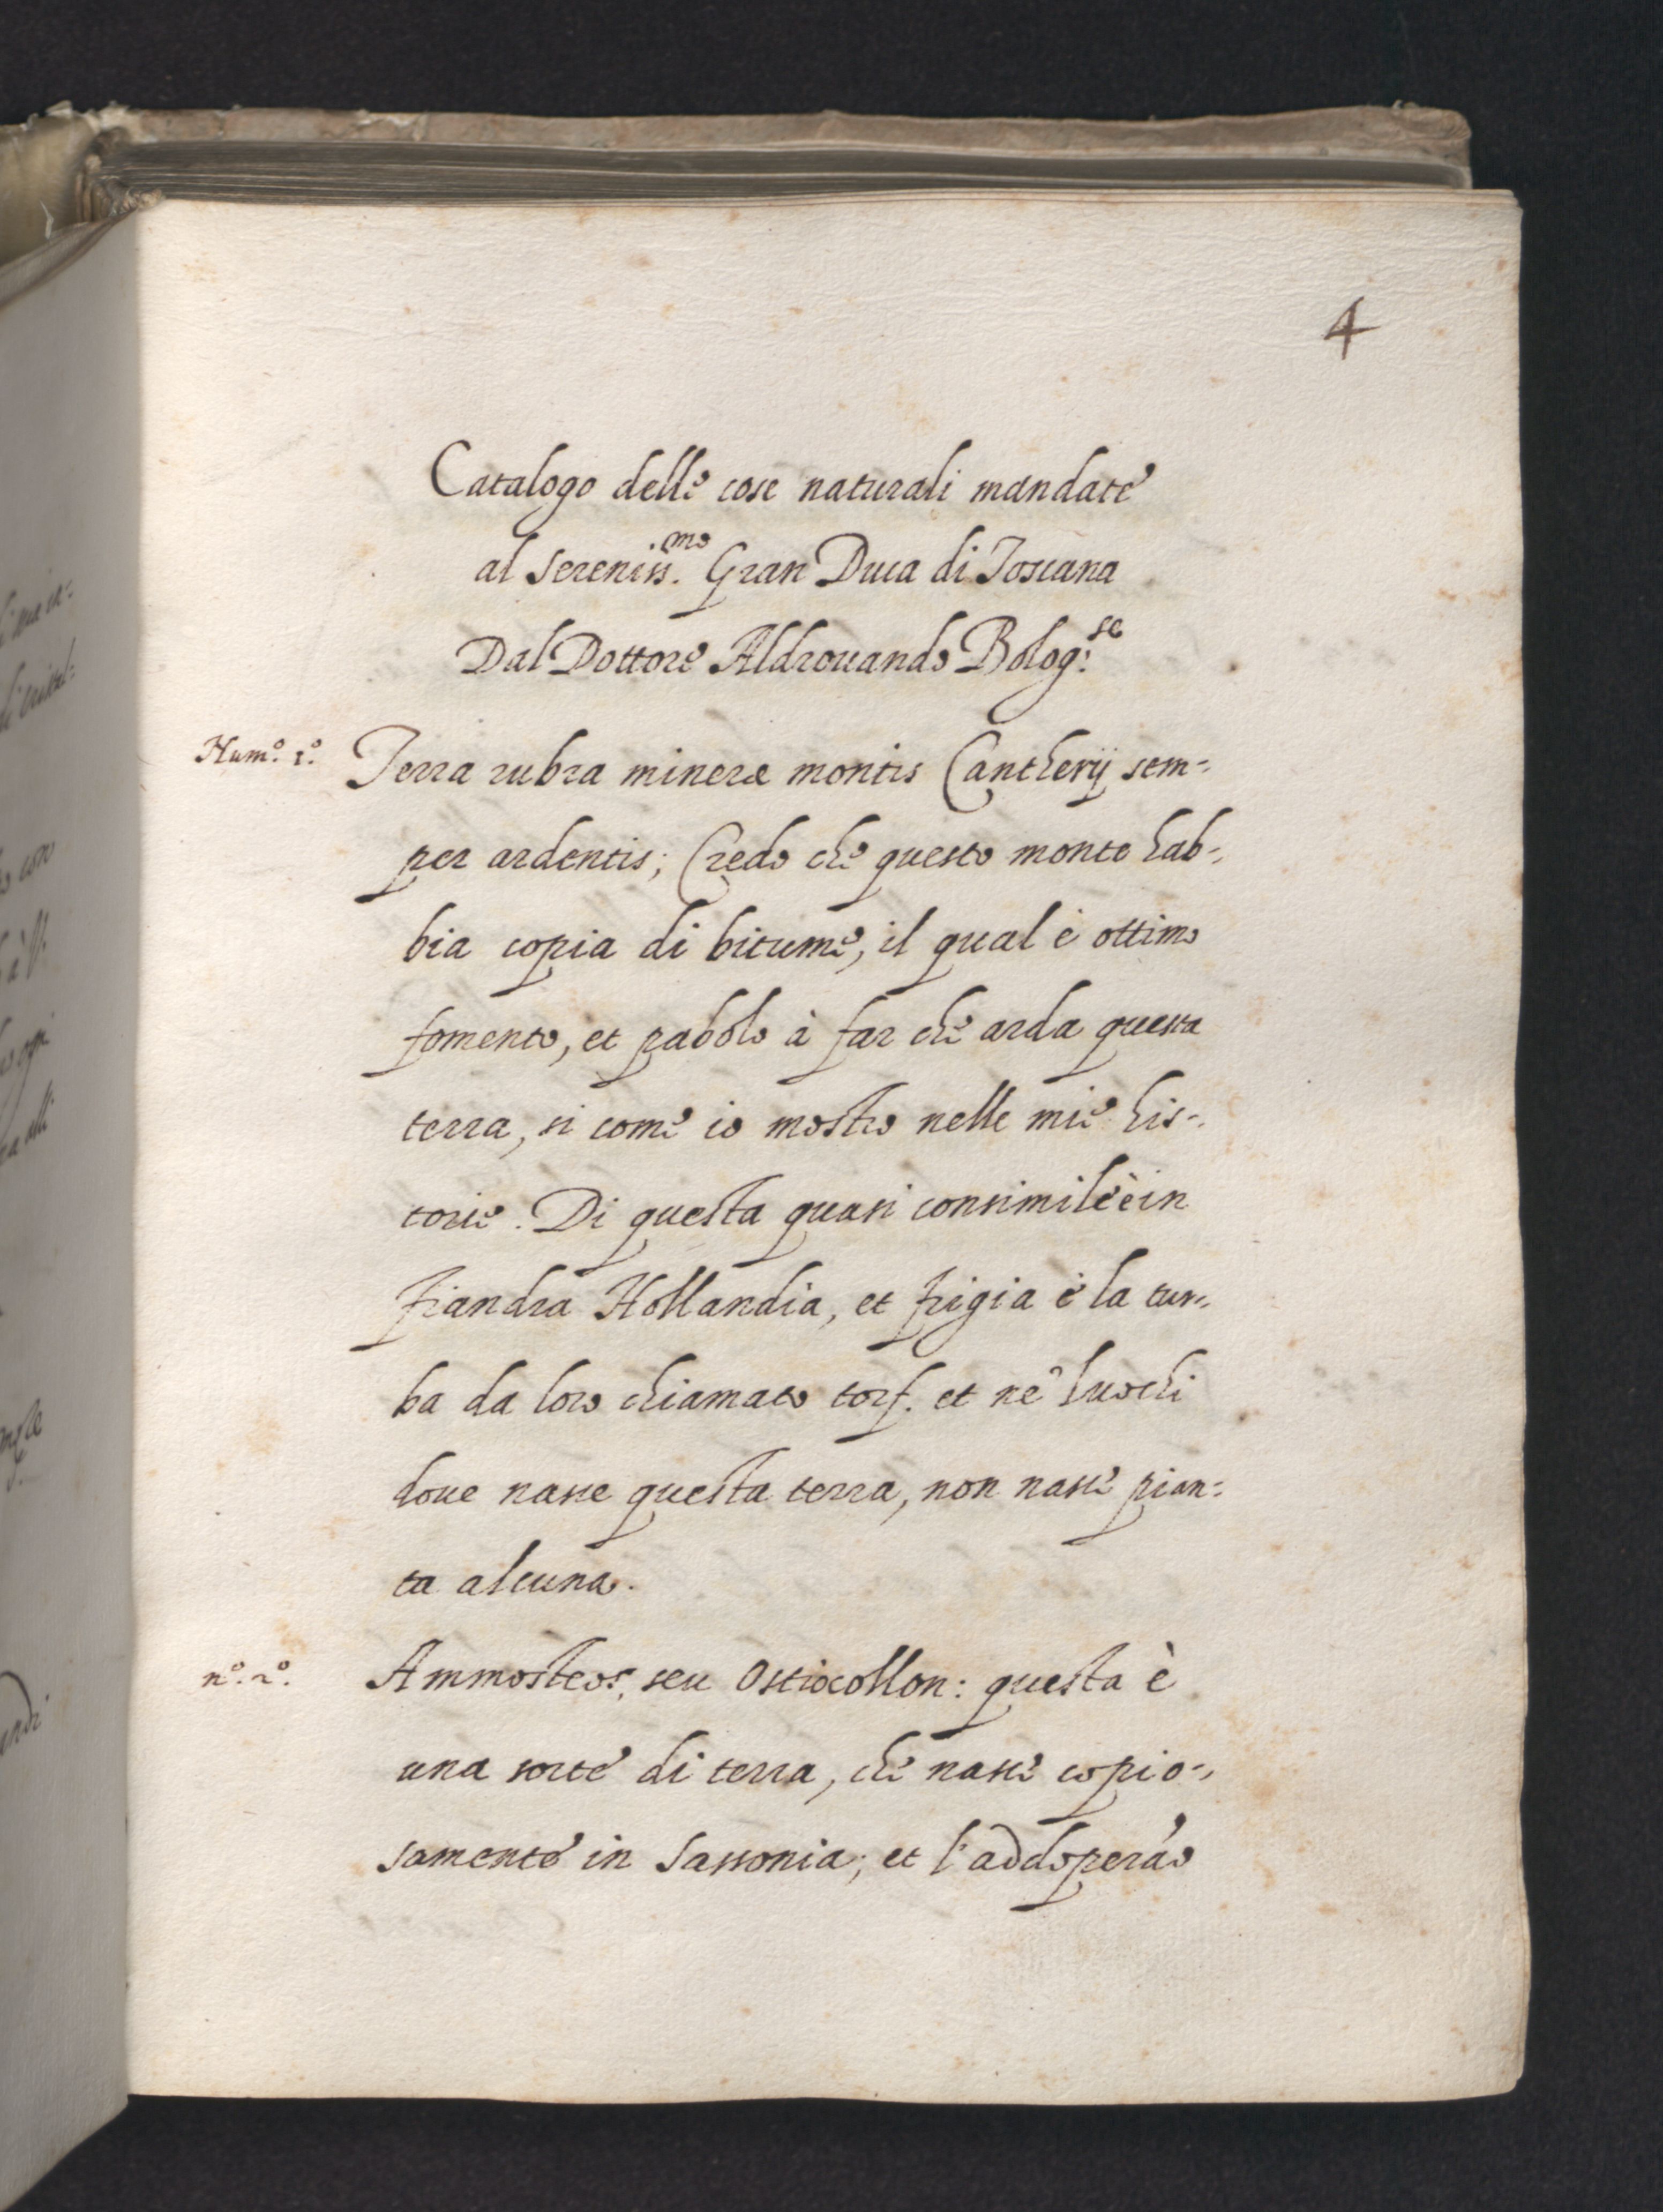 4
Catalogo delle cose naturali mandate
al Sereniss.mo Gran Duca di Toscana
Dal Dottore Aldrouando Bolog:se
Num.o 1.o Terra rubra mineræ montis Cantherij sem=
per ardentis; Credo che questo monte hab=
bia copia di bitume, il qual è ottimo
fomento, et pabolo à far che arda questa
terra, si come io mostro nelle mie his=
torie. Di questa quasi consimile è in
fiandra Hollandia, et frigia è la tur=
ba da loro chiamato torf. et ne' luochi
doue nasce questa terra, non nasce pian=
ta alcuna.
n.o 2.o Ammosteos, seu Ostiocollon: questa è
una sorte di terra, che nasce copio=
samente in Sassonia; et l'addoperão